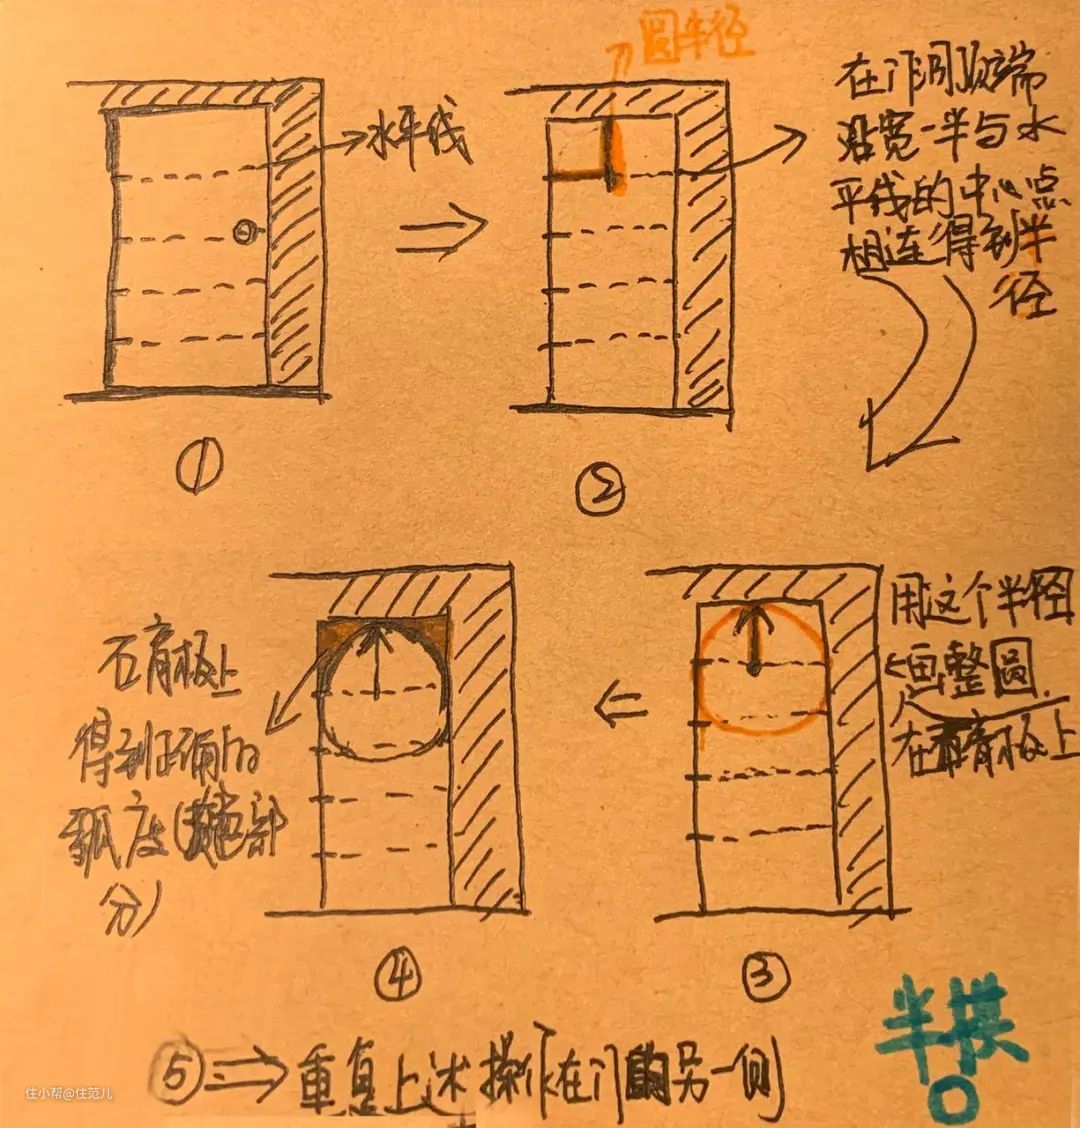 圆半径
水平线
①
在门洞顶端
沿宽一半与水
平线的中心点
相连得到半
径
②
用这个半径
画整圆
在石膏板上
③
石膏板上
得到正确的
弧度(橙色部
分)
④
⑤ 重复上述操作在门的另一侧
半拱
住小帮@住范儿